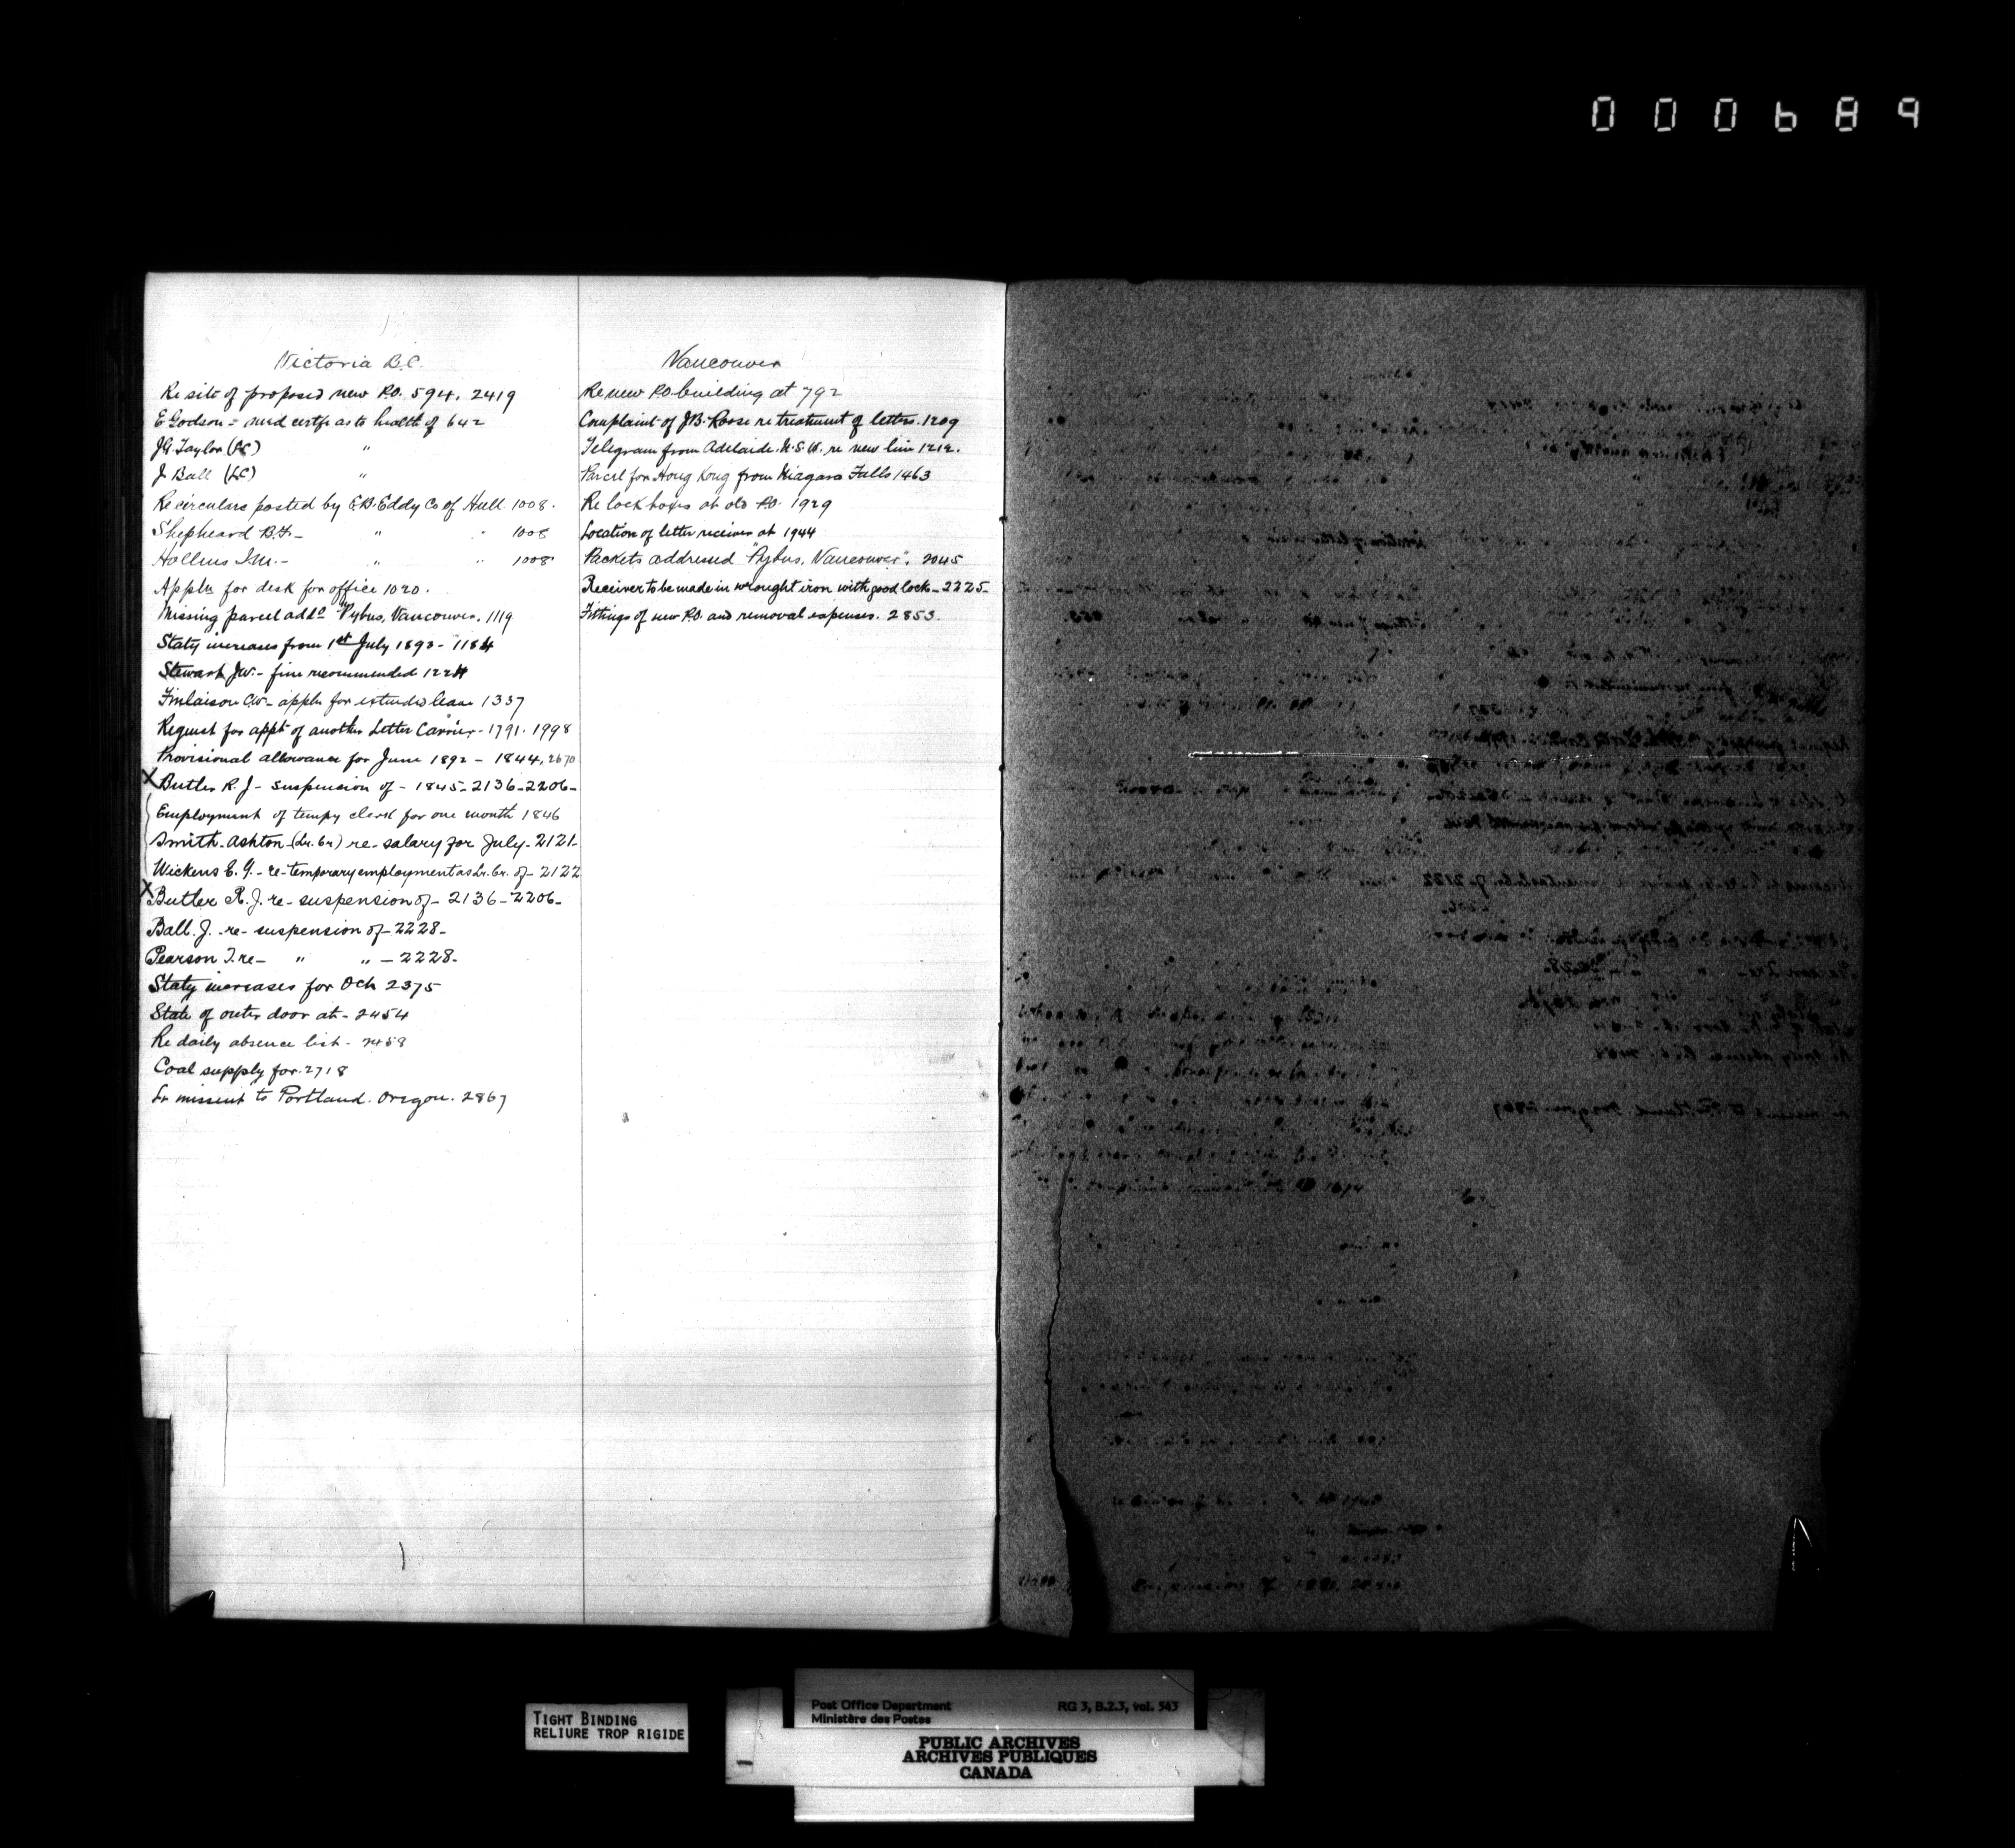 000689
Victoria B.C.
Re site of proposed new P.O. 594. 2419
E Godson = med certfe as to health of 642
J.G. Taylor (LC) "
J Ball (LC) "
Re circulars posted by E.B. Eddy Co of Hull 1008.
Shepheard B.H- " " 1008
Hollins I.M.- " " 1008
Appln for desk for office 1020.
Missing parcel addd "Pybus, Vancouver. 1119
Staty increases from 1st July 1892- 1184
Stewart J.W.- fine recommended 1224
Finlaison C.W- appln for extended leave 1337
Request for appt of another Letter Carrier - 1791. 1998
Provisional allowance for June 1892 - 1844, 2670
X Butler R. J - suspension of - 1845-2136-2206-
Employment of tempy clerk for one month 1846
Smith-Ashton-(Lr. Cr) re-salary for July-2121-
Wickens E. G.- re-temporary employment as Lr. Cr. of- 2122
X Butler R. J. re- suspension of- 2136-2206-
Ball. J. -re- suspension of-2228-
Pearson T. re- " " -2228-
Staty increases for Oct 2375
State of outer door at- 2454
Re daily absence list- 2458
Coal supply for. 2718
Lr missent to Portland. Oregon. 2867
Vancouver
Re new P.O. building at 792
Complaint of J.B. Roose re treatment of letters. 1209
Telegram from Adelaide. N.S.W. re new line 1212.
Parcel for Hong Kong from Niagara Falls 1463
Re lock boxes at old P.O. 1929
Location of letter receiver at 1944
Packets addressed "Pybus, Vancouver". 2045
Receiver to be made in wrought iron with good lock-2225-
Fittings of new P.O. and removal expenses. 2853.
TIGHT BINDING
RELIURE TROP RIGIDE
Post Office Department RG 3, B.2.3, vol. 543
Ministère des Postes
PUBLIC ARCHIVES
ARCHIVES PUBLIQUES
CANADA